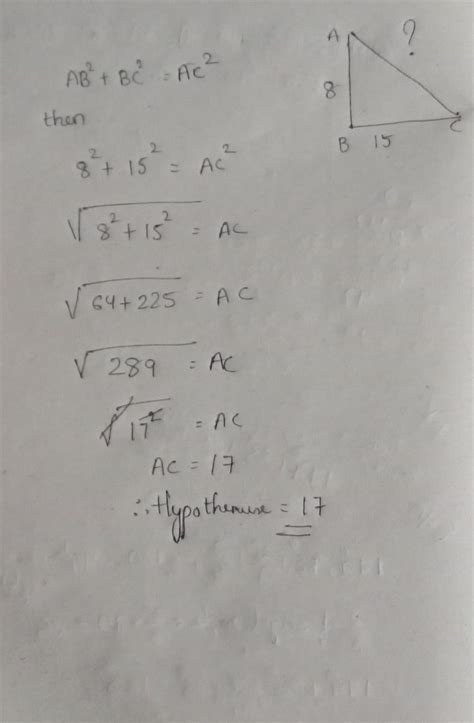 AB² + BC² = AC²
then
8² + 15² = AC²
√8² + 15² = AC
√64 + 225 = AC
√289 = AC
√17² = AC
AC = 17
∴ Hypothenuse = 17
A
?
8
B
15
C